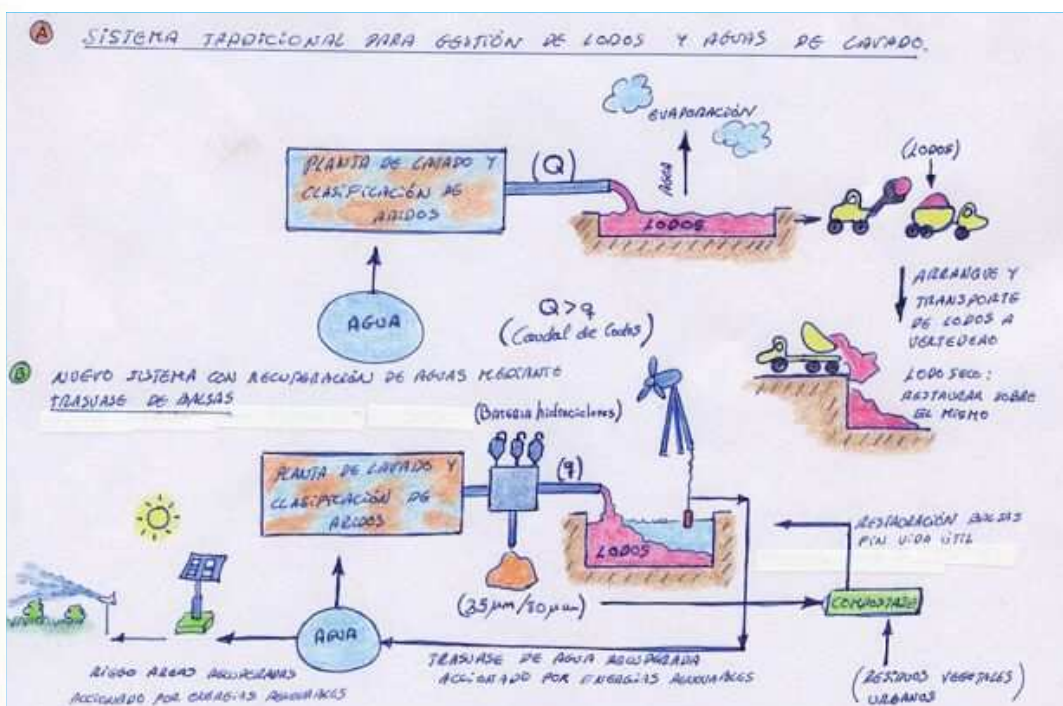 A SISTEMA TRADICIONAL PARA GESTIÓN DE LODOS Y AGUAS DE LAVADO.
EVAPORACIÓN
AGUA
(LODOS)
PLANTA DE LAVADO Y
CLASIFICACIÓN DE
ARIDOS
(Q)
LODOS
AGUA
Q>q
(Caudal de Lodos)
ARRANQUE Y
TRANSPORTE
DE LODOS A
VERTEDERO
LODO SECO:
RESTAURAR SOBRE
EL MISMO
B NUEVO SISTEMA CON RECUPERACIÓN DE AGUAS MEDIANTE
TRASVASE DE BALSAS
(Bateria hidrociclones)
PLANTA DE LAVADO Y
CLASIFICACIÓN DE
ARIDOS
(q)
LODOS
RESTAURACIÓN BALSAS
FIN VIDA ÚTIL
(25µm/80µm)
COMPOSTAJE
AGUA
TRASVASE DE AGUA RECUPERADA
ACCIONADO POR ENERGIAS RENOVABLES
RIEGO AREAS RECUPERADAS
ACCIONADO POR ENERGIAS RENOVABLES
(RESIDUOS VEGETALES
URBANOS)